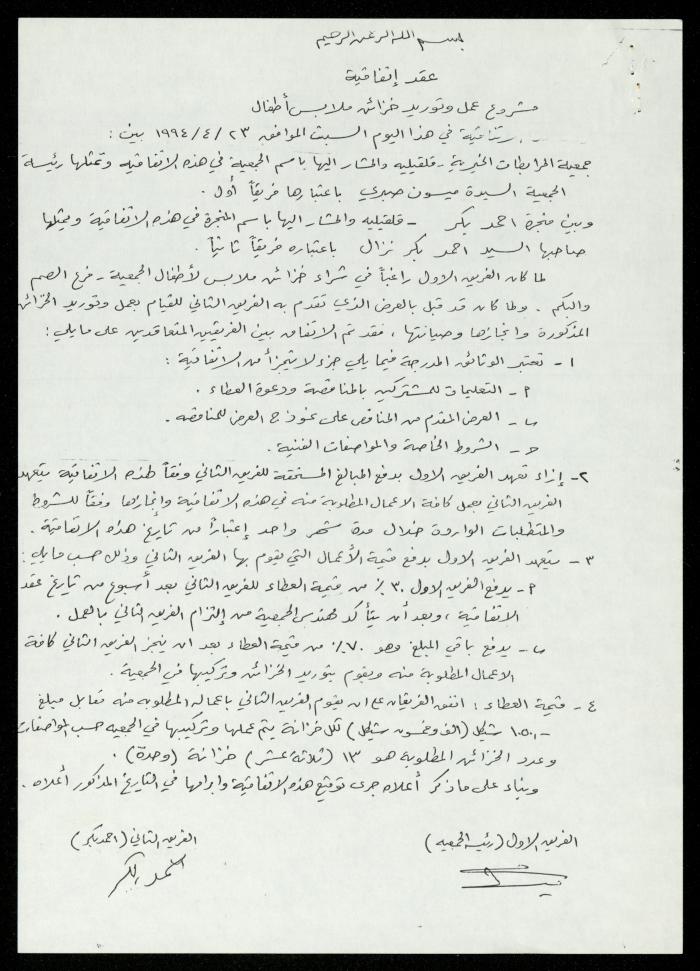 بسم الله الرحمن الرحيم
عقد إتفاقية
مشروع عمل وتوريد خزائن ملابس أطفال
إتفاقية في هذا اليوم السبت الموافق ٢٣/٤/١٩٩٤ بين :
جمعية المرابطات الخيرية - قلقيليه والمشار اليها باسم الجمعية في هذه الاتفاقيه وتمثلها رئيسة
الجمعية السيدة ميسون صبري باعتبارها فريقاً أول .
وبين منجرة احمد بكر - قلقيليه والمشار اليها باسم المنجرة في هذه الاتفاقية ويمثلها
صاحبها السيد احمد بكر نزال باعتباره فريقاً ثانياً .
لما كان الفريق الاول راغباً في شراء خزائن ملابس لأطفال الجمعية - فرع الصم
والبكم . ولما كان قد قبل بالعرض الذي تقدم به الفريق الثاني للقيام بعمل وتوريد الخزائن
المذكورة وانجازها وصيانتها ، فقد تم الاتفاق بين الفريقين المتعاقدين على مايلي :
١ - تعتبر الوثائق المدرجة فيما يلي جزء لا يتجزأ من الاتفاقية :
٢ - التعليمات للمشتركين بالمناقصة ودعوة العطاء .
ب - العرض المقدم من المناقص على نموذج العرض للمناقصه .
ح - الشروط الخاصة والمواصفات الفنية .
٢ - إزاء تعهد الفريق الاول بدفع المبالغ المستحقة للفريق الثاني وفقاً لهذه الاتفاقية يتعهد
الفريق الثاني بعمل كافة الاعمال المطلوبة منه في هذه الاتفاقية وإنجازها وفقاً للشروط
والمتطلبات الواردة خلال مدة شهر واحد إعتباراً من تاريخ هذه الاتفاقية .
٣ - يتعهد الفريق الاول بدفع قيمة الأعمال التي يقوم بها الفريق الثاني وذلك حسب مايلي :
٢ - يدفع الفريق الاول ٣٠٪ من قيمة العطاء للفريق الثاني بعد أسبوع من تاريخ عقد
الاتفاقية ، وبعد أن يتأكد مهندس الجمعية من إلتزام الفريق الثاني بالعمل .
ب - يدفع باقي المبلغ وهو ٧٠٪ من قيمة العطاء بعد ان ينجز الفريق الثاني كافة
الاعمال المطلوبة منه ويقوم بتوريد الخزائن وتركيبها في الجمعية .
٤ - قيمة العطاء : اتفق الفريقان على ان يقوم الفريق الثاني باعماله المطلوبه منه مقابل مبلغ
- ١٠٥٠ شيكل (الف وخمسون شيكل) لكل خزانة يتم عملها وتركيبها في الجمعيه حسب المواصفات
وعدد الخزائن المطلوبة هو ١٣ (ثلاثة عشر) خزانة (وحدة) .
وبناء على ماذكر أعلاه جرى توقيع هذه الاتفاقية وابرامها في التاريخ المذكور أعلاه .
الفريق الاول (رئيسة الجمعيه) الفريق الثاني (احمد بكر)
احمد بكر